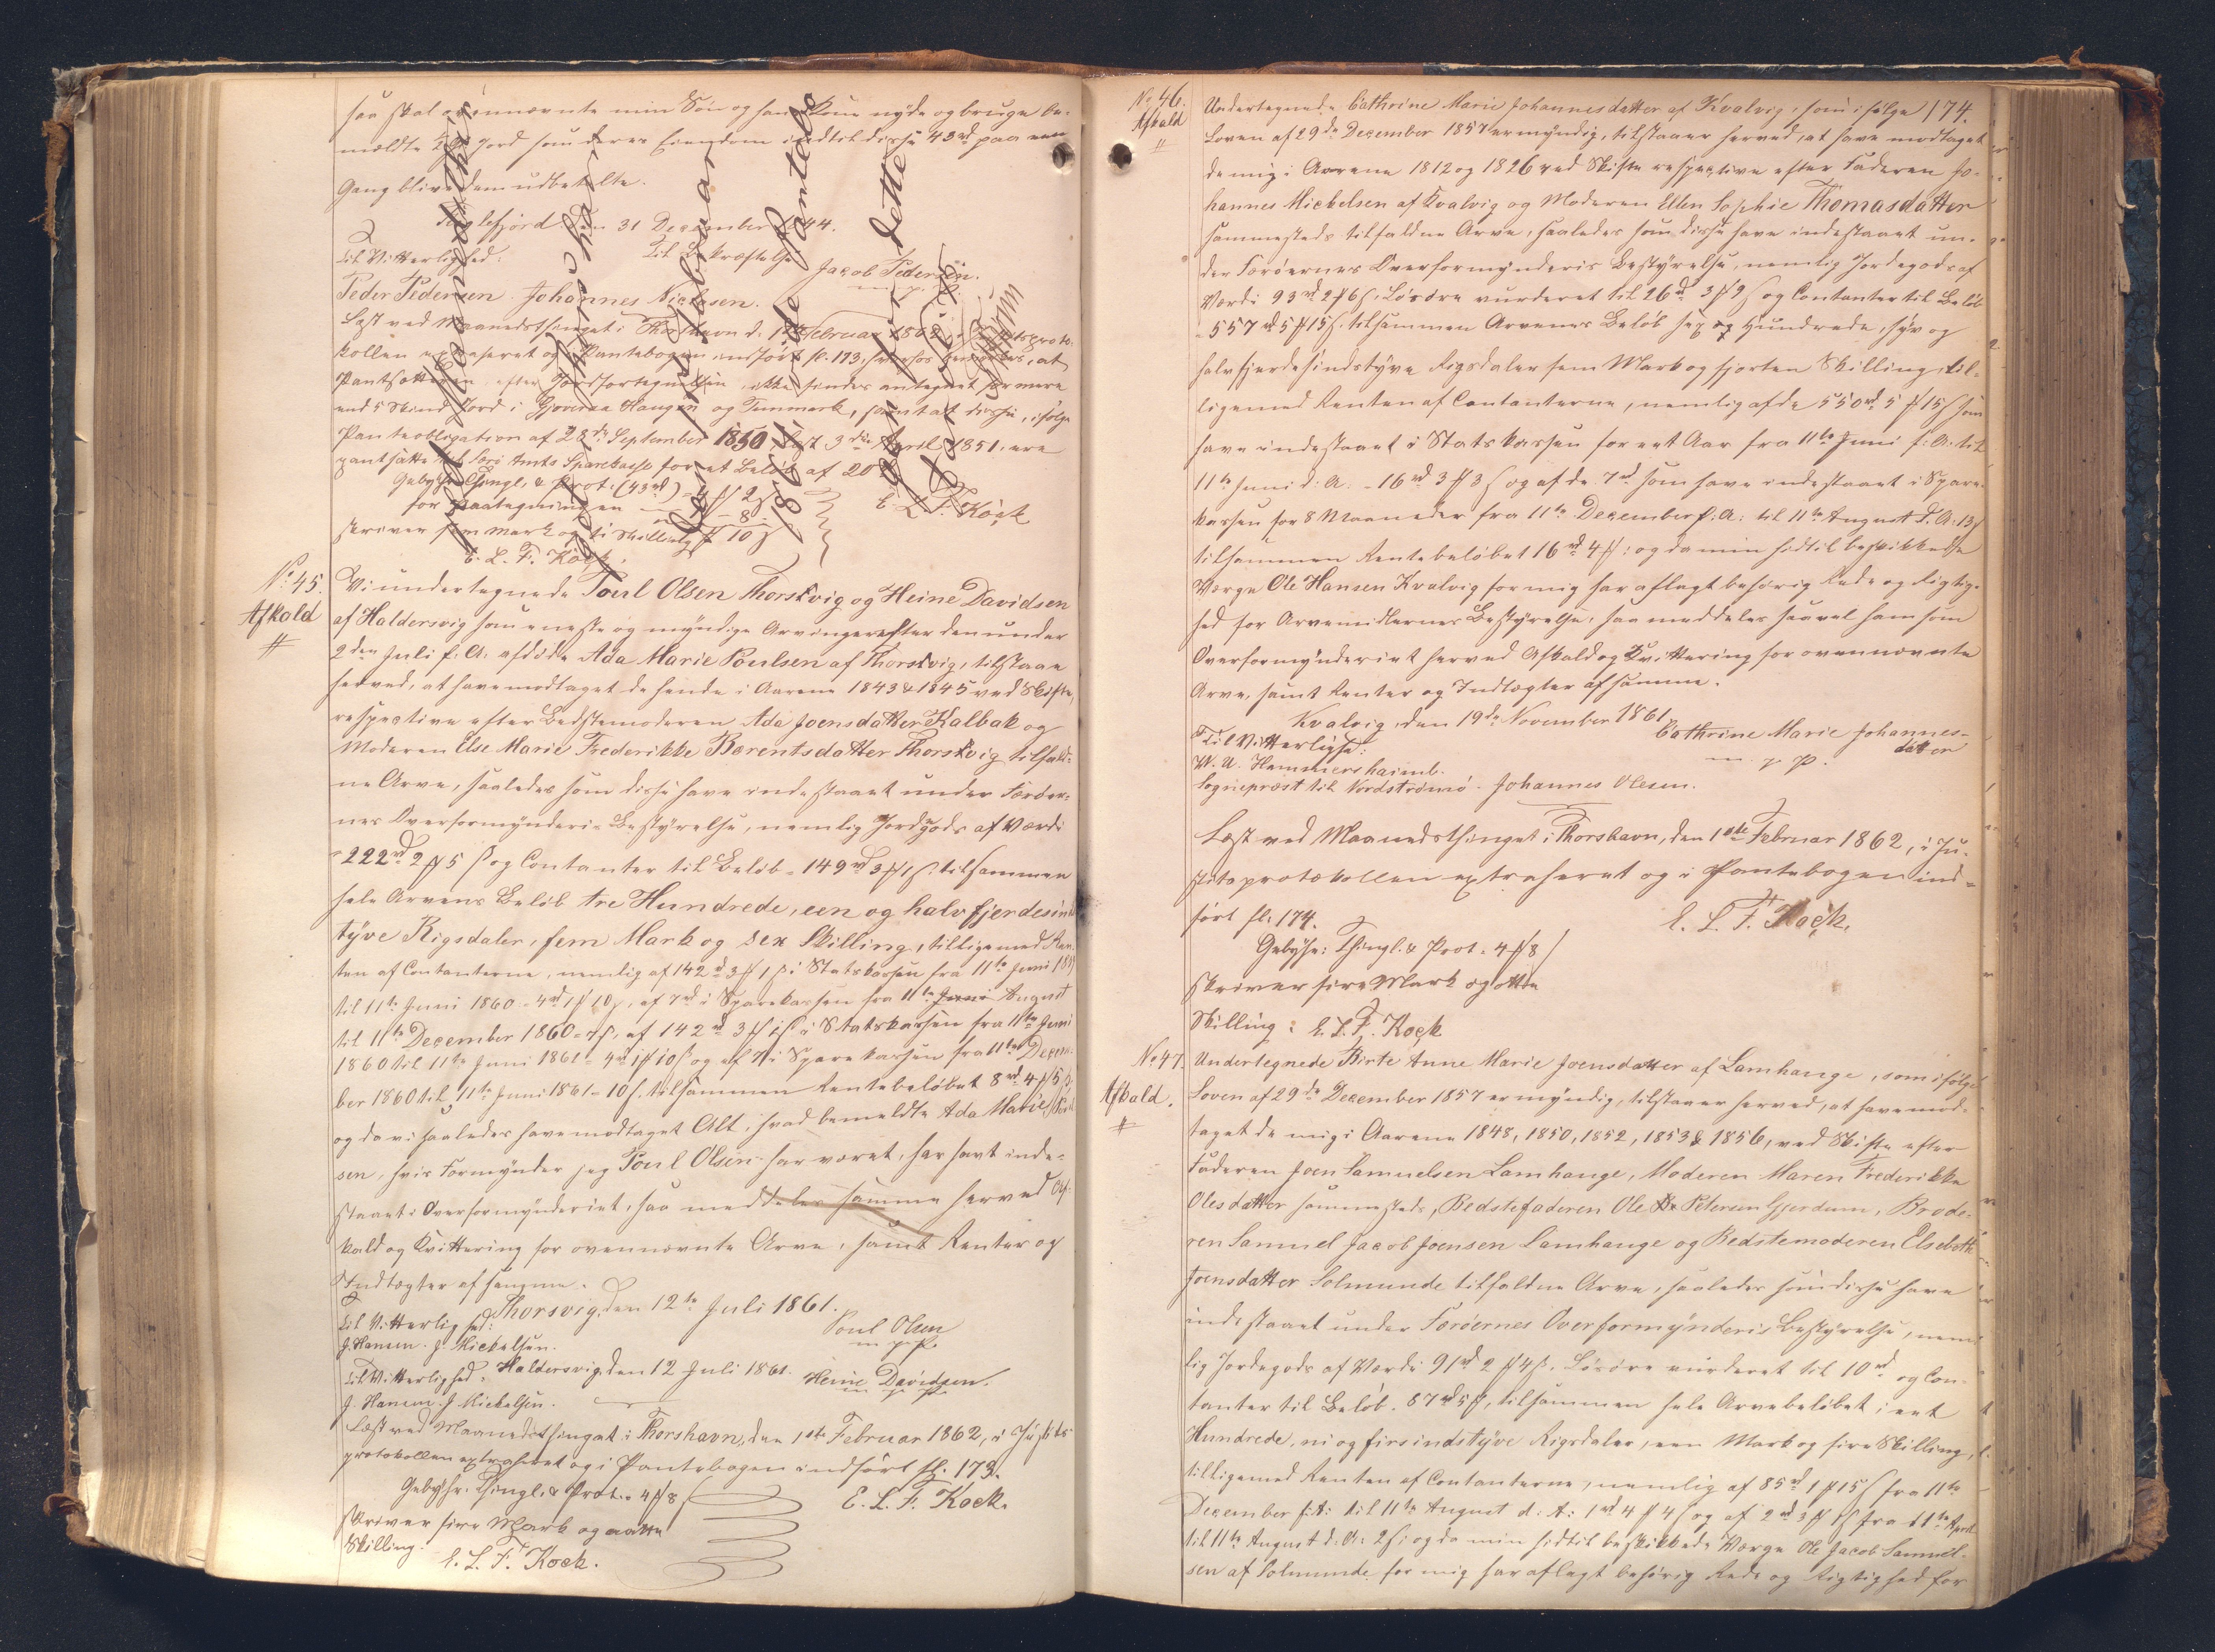 saa skal ovennævnte min Søn og hans Kone nyde og bruge be-
mældte Jord som deres Eiendom indtil disse 43 rd paa een
Gang blive dem udbetalte.
den 31 December 1844.
Til Vitterlighed: Til Bekræftelse
Jacob Pedersen.
Peder Pedersen. Johannes Nielsen. m. p. P.
Læst ved Maanedsthinget i Thorshavn d. 1 Februar 1862, i Justitsproto-
kollen extraheret og i Pantebogen indført fl. 173, hvorhos bemærkes, at
Pantsætteren efter Jordfortegnelsen ikke findes antegnet for mere
end 5 Skind Jord i Haugen og Funmark, samt at disse, ifølge
Panteobligation af 28de September 1850, læst 3die April 1851, ere
pantsatte til Færø Amts Sparekasse for et Beløb af 20 rd
Gebyhr: Thingl. & Prot. (43 rd) 4 # 2 ß
for Paategningen - 8 -
skriver fem Mark og ti Skilling # 10 ß E. L. F. Kock
E. L. F. Kock.
No. 45.
Afkald
#
Vi undertegnede Poul Olsen Thorsvig og Heine Davidsen
af Haldersvig som eneste og myndige Arvinger efter den under
2den Juli f. A. afdøde Ada Marie Poulsen af Thorsvig, tilstaae
herved, at have modtaget de hende i Aarene 1843 & 1845 ved Skifte,
respective efter Bedstemoderen Ada Joensdatter Kalbak og
Moderen Else Marie Frederikke Barentsdatter Thorsvig tilfald-
ne Arve, saaledes som disse have indestaaet under Færøer-
nes Overformynderis Bestyrelse, nemlig Jordegods af Værdi
222 rd 2 # 5 ß og Contanter til Beløb - 149 rd 3 # 1 ß. tilsammen
hele Arvens Beløb tre Hundrede, een og halvfjerdesinds
tyve Rigsdaler, fem Mark og sex Skilling, tilligemed Ren-
ten af Contanterne, nemlig af 142 rd 3 # 1 ß i Statskassen fra 11te Juni 1859
til 11te Juni 1860 - 4 rd 1 # 10 ß, af 7 rd i Sparekassen fra 11te Juni August
til 11te December 1860 - 7 ß, af 142 rd 3 # 1 ß i Statskassen fra 11te Juni
1860 til 11te Juni 1861 - 4 rd 1 # 10 ß og af 7 rd i Sparekassen fra 11te Decem-
ber 1860 til 11te Juni 1861 - 10 ß. tilsammen Rentebeløbet 8 rd 4 # 5 ß.
og da vi saaledes have modtaget Alt, hvad bemeldte Ada Marie Poul-
sen, hvis Formynder jeg Poul Olsen har været, har havt inde-
staaet i Overformynderiet, saa meddeles samme herved Af-
kald og Kvittering for ovennævnte Arve, samt Renter og
Indtægter af samme.
Thorsvig, den 12te Juli 1861.
Til Vitterlighed: Poul Olsen
J. Hansen. J. Mickelsen. m. p. P.
Til Vitterlighed. Haldersvig, den 12 Juli 1861. Heine Davidsen.
J. Hansen. J. Mickelsen. m. p. P.
Læst ved Maanedsthinget i Thorshavn, den 1ste Februar 1862, i Justits-
protokollen extraheret og i Pantebogen indført fl. 173.
Gebyhr. Thingl. & Prot. - 4 # 8 ß E. L. F. Kock.
skriver fire Mark og otte
Skilling. E. L. F. Kock.
174.
No. 46.
Afkald
#
Undertegnede Cathrine Marie Johannesdatter af Kvalvig, som ifølge
Loven af 29de December 1857 er myndig, tilstaaer herved, at have modtaget
de mig i Aarene 1812 og 1826 ved Skifte respective efter Faderen Jo-
hannes Mickelsen af Kvalvig og Moderen Ellen Sophie Thomasdatter
sammesteds tilfaldne Arve, saaledes som disse have indestaaet un-
der Færøernes Overformynderis Bestyrelse, nemlig Jordegods af
Værdi 93 rd 2 # 6 ß, Løsøre vurderet til 26 rd 3 # 9 ß og Contanter til Beløb
- 557 rd 5 # 15 ß. tilsammen Arvenes Beløb sex Hundrede, syv og
halvfjerdesindstyve Rigsdaler fem Mark og fjorten Skilling, til-
ligemed Renten af Contanterne, nemlig af de 550 rd 5 # 15 ß som
have indestaaet i Statskassen for eet Aar fra 11te Juni f. A. til
11te Juni d. A. - 16 rd 3 # 3 ß og af de 7 rd som have indestaaet i Spare-
kassen for 8 Maaneder fra 11te December f. A. til 11te August d. A. 13 ß
tilsammen Rentebeløbet 16 rd 4 #: og da min hidtil beskikkede
Værge Ole Hansen Kvalvig for mig har aflagt behørig Rede og Rigtig-
hed for Arvemidlernes Bestyrelse, saa meddeles saavel ham som
Overformynderiet herved Afkald og Kvittering for ovennævnte
Arve, samt Renter og Indtægter af samme.
Kvalvig, den 19de November 1861
Til Vitterlighed: Cathrine Marie Johannes-
datter
W. U. Hammershaimb. m. p. P.
Sognepræst til Nordstrømø. Johannes Olesen.
Læst ved Maanedsthinget i Thorshavn, den 1ste Februar 1862, i Ju-
stitsprotokollen extraheret og i Pantebogen ind-
ført fl. 174. E. L. F. Kock.
Gebyhr: Thingl. & Prot. 4 # 8 ß
skriver fire Mark og otte
Skilling. E. L. F. Kock
No. 47.
Afkald.
#
Undertegnede Birte Anne Marie Joensdatter af Lamhauge, som ifølge
Loven af 29de December 1857 er myndig, tilstaaer herved, at have mod-
taget de mig i Aarene 1848, 1850, 1852, 1853 & 1856, ved Skifte efter
Faderen Joen Samuelsen Lamhauge, Moderen Maren Frederikke
Olesdatter sammesteds, Bedstefaderen Ole Petersen Gjerdum, Brode-
ren Samuel Jacob Joensen Lamhauge og Bedstemoderen Elsebeth
Joensdatter Solmunde tilfaldne Arve, saaledes som disse have
indestaaet under Færøernes Overformynderis Bestyrelse, nem-
lig Jordegods af Værdi 91 rd 2 # 4 ß. Løsøre vurderet til 10 rd og Con-
tanter til Beløb. 87 rd 5 #, tilsammen hele Arvebeløbet, eet
Hundrede, ni og firsindstyve Rigsdaler, een Mark og fire Skilling,
tilligemed Renten af Contanterne, nemlig af 85 rd 1 # 15 ß fra 11te
December f. A. til 11te August d. A. 1 rd 4 # 4 ß og af 2 rd 3 # 1 ß fra 11te April
til 11te August d. A. 2 ß; og da min hidtil beskikkede Værge Ole Jacob Samuel-
sen af Solmunde for mig har aflagt behørig Rede og Rigtighed for